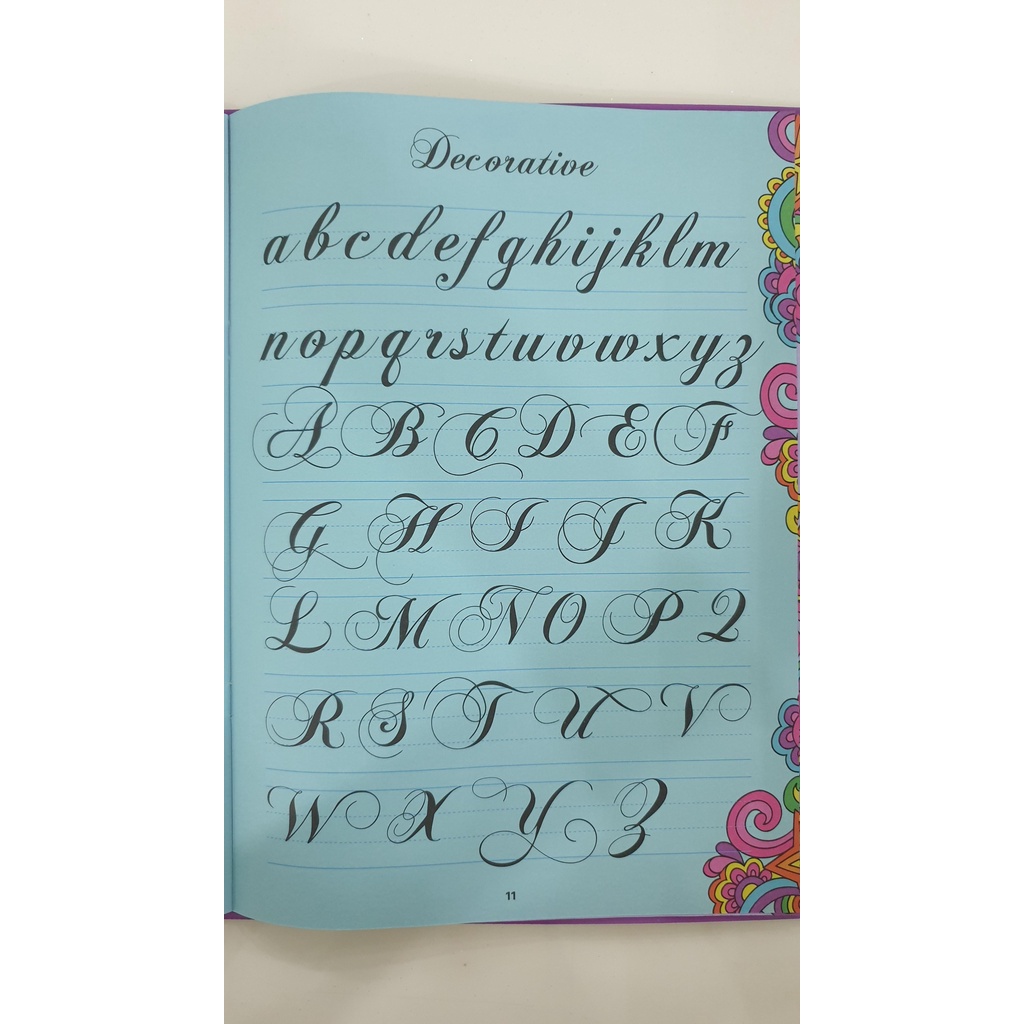 Decorative
a b c d e f g h i j k l m
n o p q r s t u v w x y z
A B C D E F
G H I J K
L M N O P Q
R S T U V
W X Y Z
11